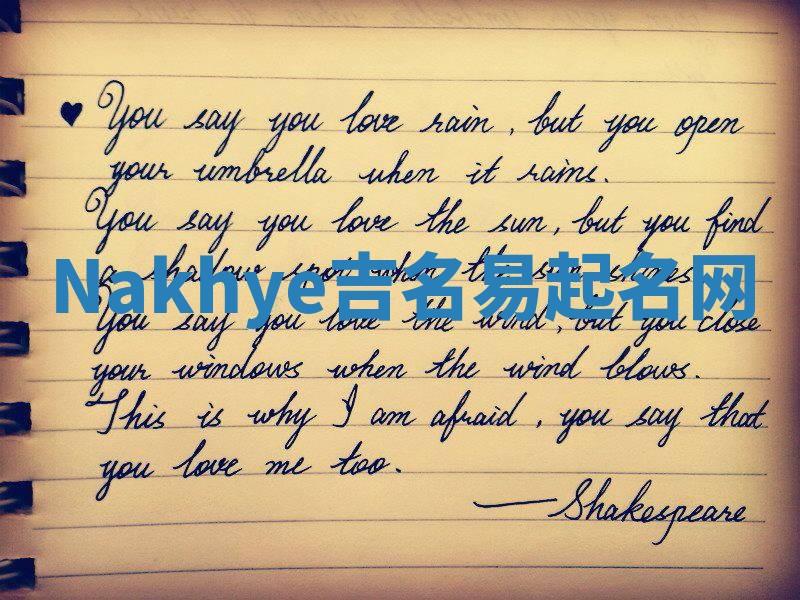 ♥ You say you love rain, but you open
your umbrella when it rains.
You say you love the sun, but you find
a shadow spot when the sun shines
Nakhye吉名易起名网
You say you love the wind, but you close
your windows when the wind blows.
This is why I am afraid, you say that
you love me too.
—Shakespeare